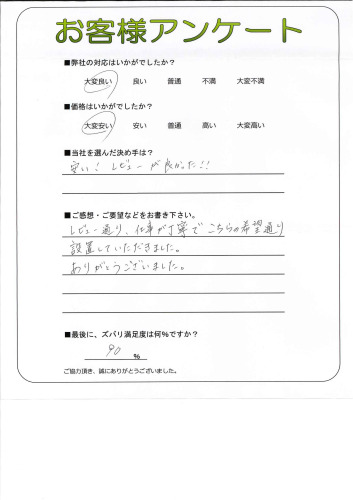 お客様アンケート
■弊社の対応はいかがでしたか？
大変良い 良い 普通 不満 大変不満
■価格はいかがでしたか？
大変安い 安い 普通 高い 大変高い
■当社を選んだ決め手は？
安い！ レビューが良かった！！
■ご感想・ご要望などをお書き下さい。
レビュー通り、仕事が丁寧でこちらの希望通り
設置していただきました。
ありがとうございました。
■最後に、ズバリ満足度は何％ですか？
90 %
ご協力頂き、誠にありがとうございました。